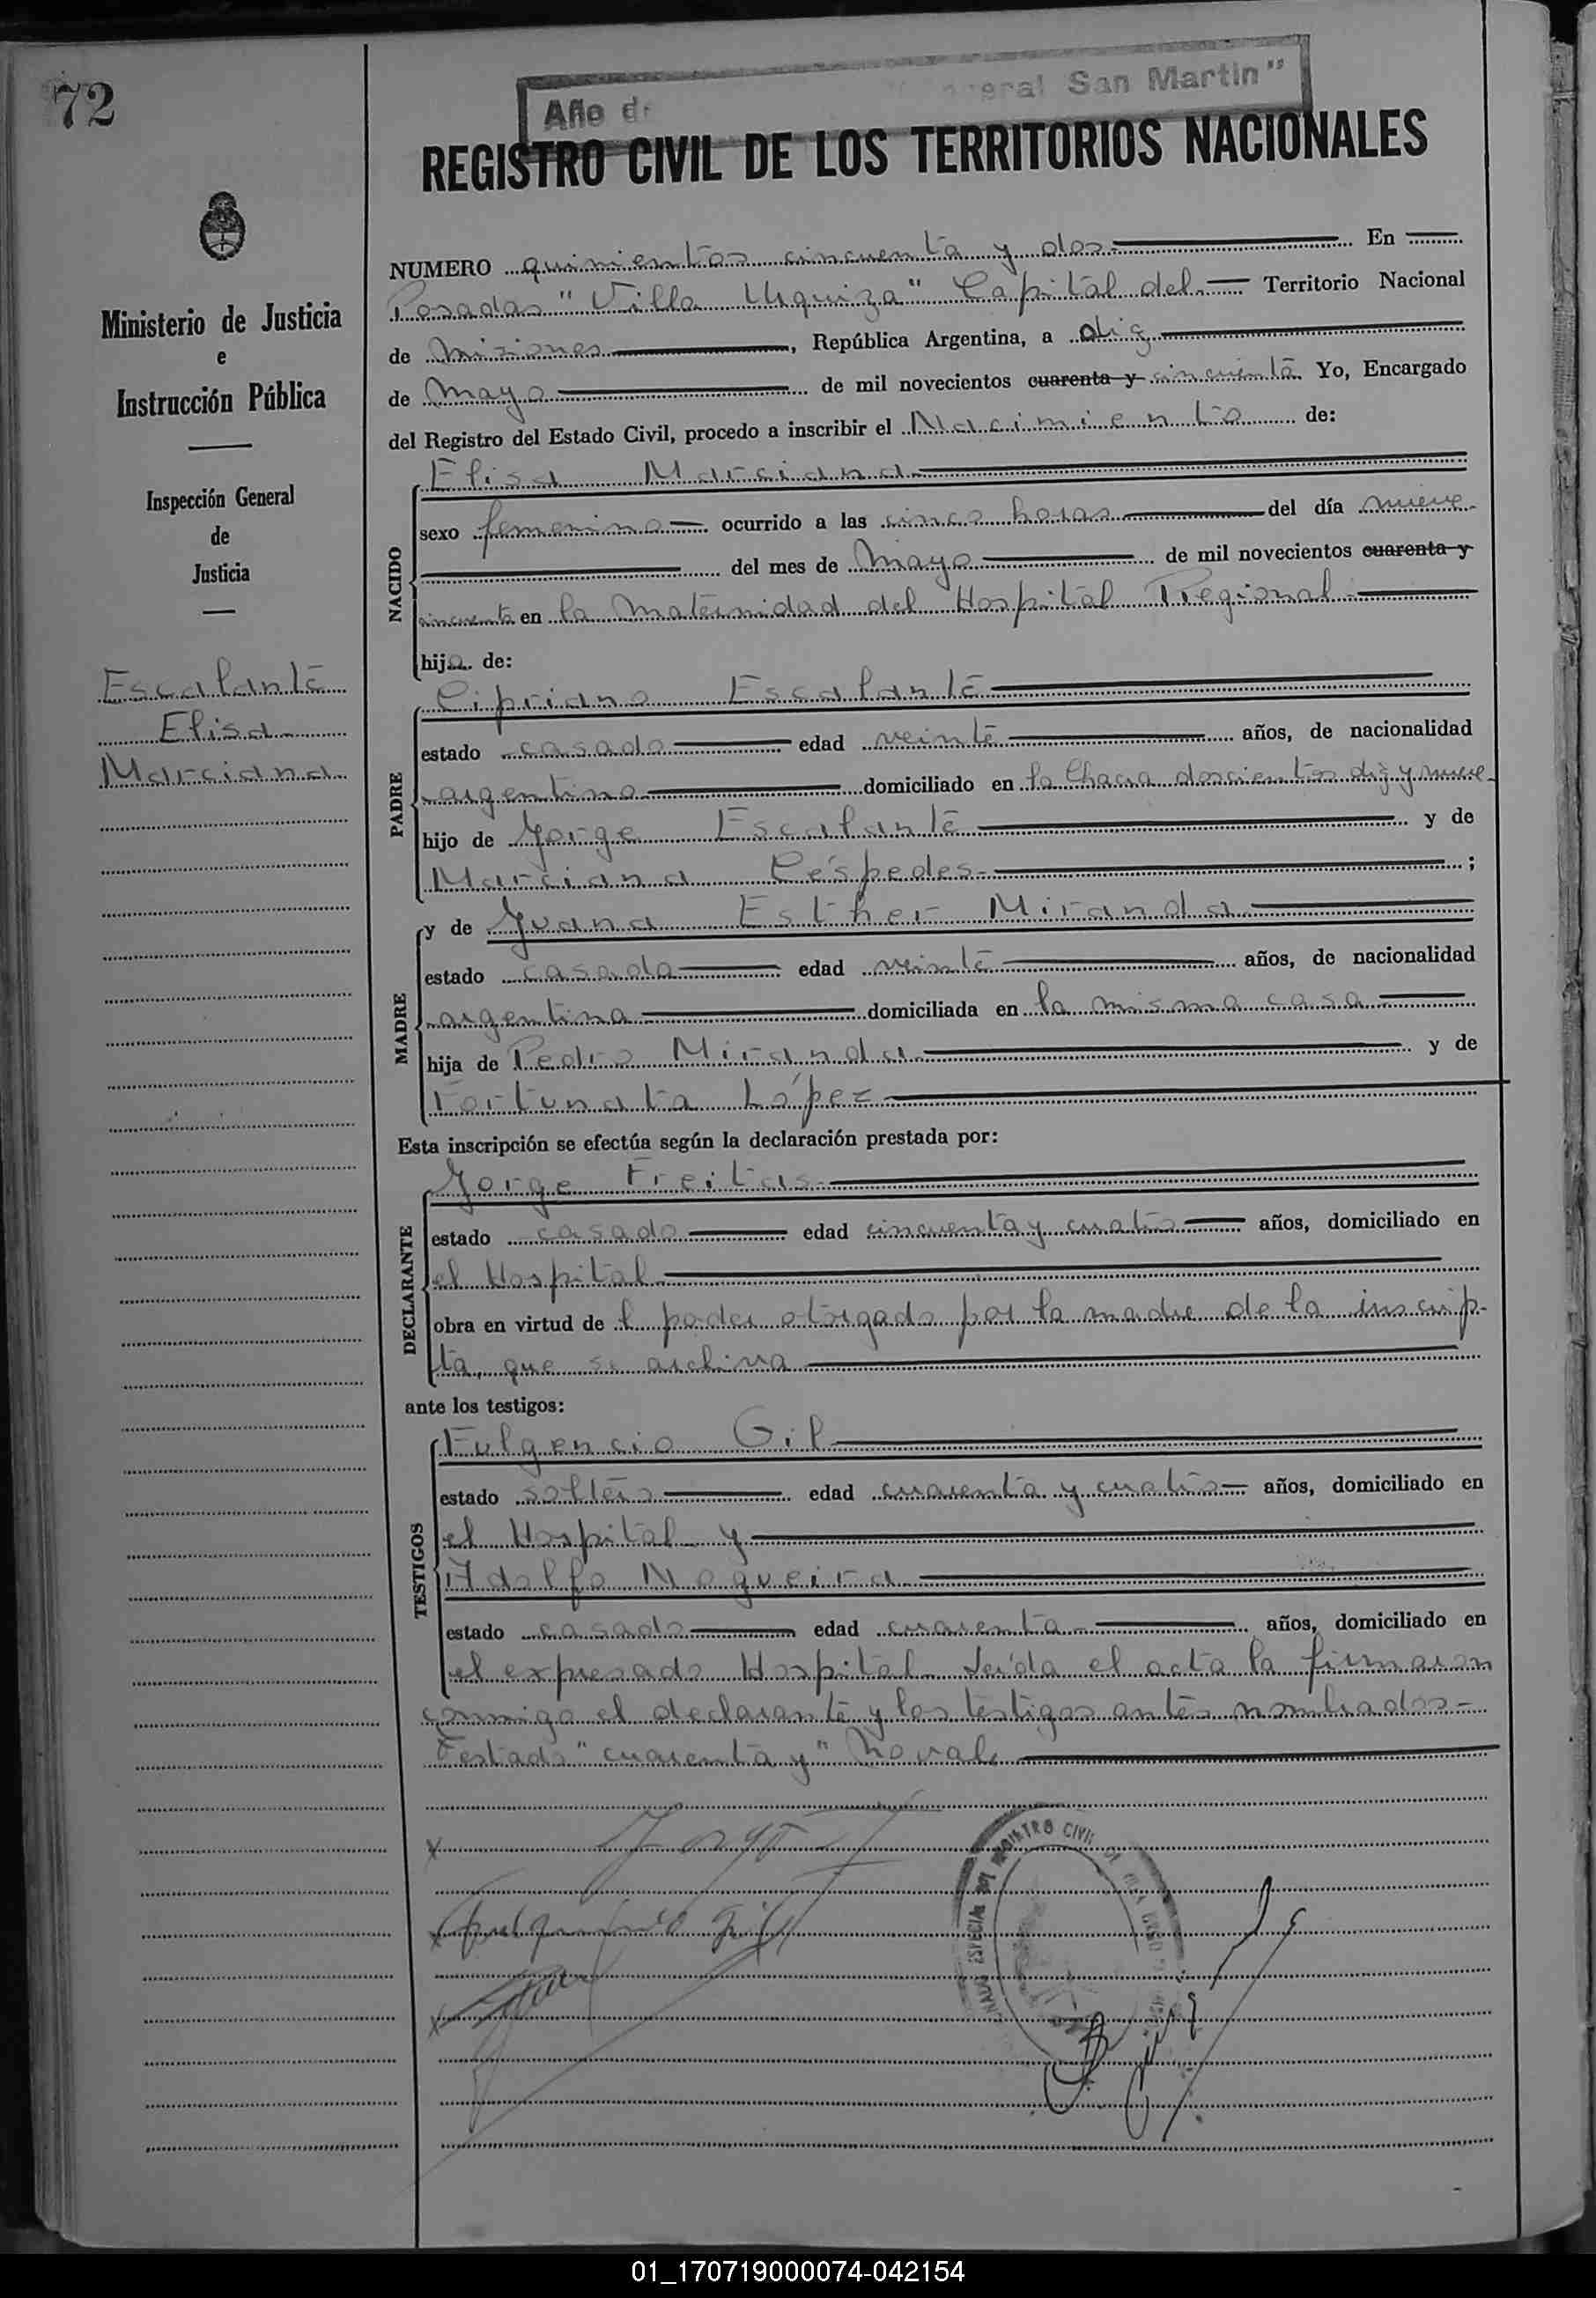 72
Año d
eral San Martin"
REGISTRO CIVIL DE LOS TERRITORIOS NACIONALES
Ministerio de Justicia
e
Instrucción Pública
Inspección General
de
Justicia
Escalante
Elisa
Marciana
NUMERO quinientos cincuenta y dos En
Posadas "Villa Urquiza" Capital del Territorio Nacional
de Misiones, República Argentina, a diez
de Mayo de mil novecientos cuarenta y cincuenta Yo, Encargado
del Registro del Estado Civil, procedo a inscribir el Nacimiento de:
NACIDO
Elisa Marciana
sexo femenino ocurrido a las cinco horas del día nueve
del mes de Mayo de mil novecientos cuarenta y
cincuenta en la Maternidad del Hospital Regional
hija de:
PADRE
Cipriano Escalante
estado casado edad veinte años, de nacionalidad
argentino domiciliado en la Chacra doscientos diez y nueve
hijo de Jorge Escalante y de
Marciana Céspedes;
MADRE
y de Juana Esther Miranda
estado casada edad veinte años, de nacionalidad
argentina domiciliada en la misma casa
hija de Pedro Miranda y de
Fortunata López
Esta inscripción se efectúa según la declaración prestada por:
DECLARANTE
Jorge Freitas
estado casado edad cincuenta y cuatro años, domiciliado en
el Hospital
obra en virtud de l poder otorgado por la madre de la inscrip-
ta, que se archiva
ante los testigos:
TESTIGOS
Fulgencio Gil
estado soltero edad cuarenta y cuatro años, domiciliado en
el Hospital y
Adolfo Nogueira
estado casado edad cuarenta años, domiciliado en
el expresado Hospital. Leída el acta la firmaron
conmigo el declarante y los testigos antes nombrados-
Testado "cuarenta y" No vale
x Jorge F
x Fulgencio Gil
x
REGISTRO CIVIL
ESPECIAL DEL
01_170719000074-042154